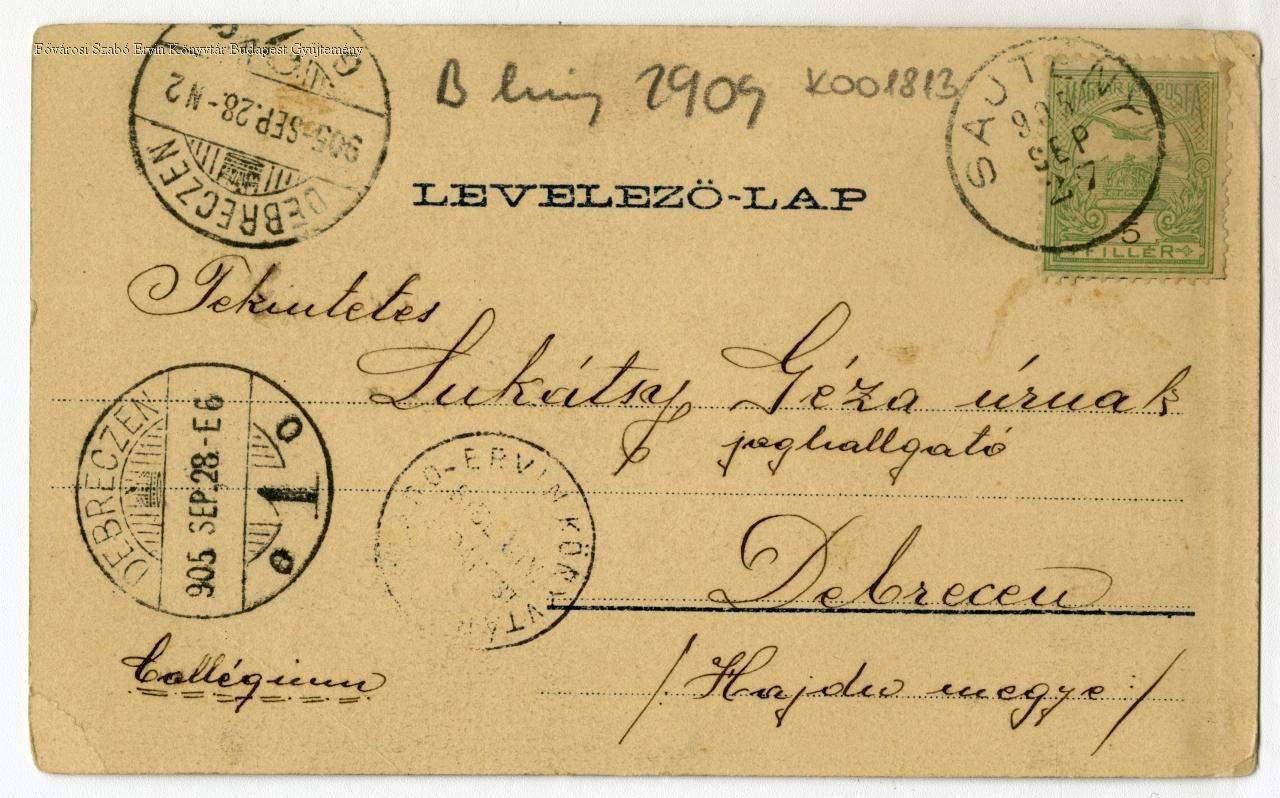 Fővárosi Szabó Ervin Könyvtár Budapest Gyűjtemény
DEBRECZEN
905 SEP.28.-N2
B 1909
K001813
SAJTÉNY
905 SEP 27
MAGYAR KIR. POSTA
5
FILLÉR
LEVELEZŐ-LAP
Tekintetes
Lukátsy Géza úrnak
joghallgató
DEBRECZEN
905 SEP.28.-E6
1
ERVIN KÖNYVTÁR
Debrecen
Collégium
/Hajdu megye/